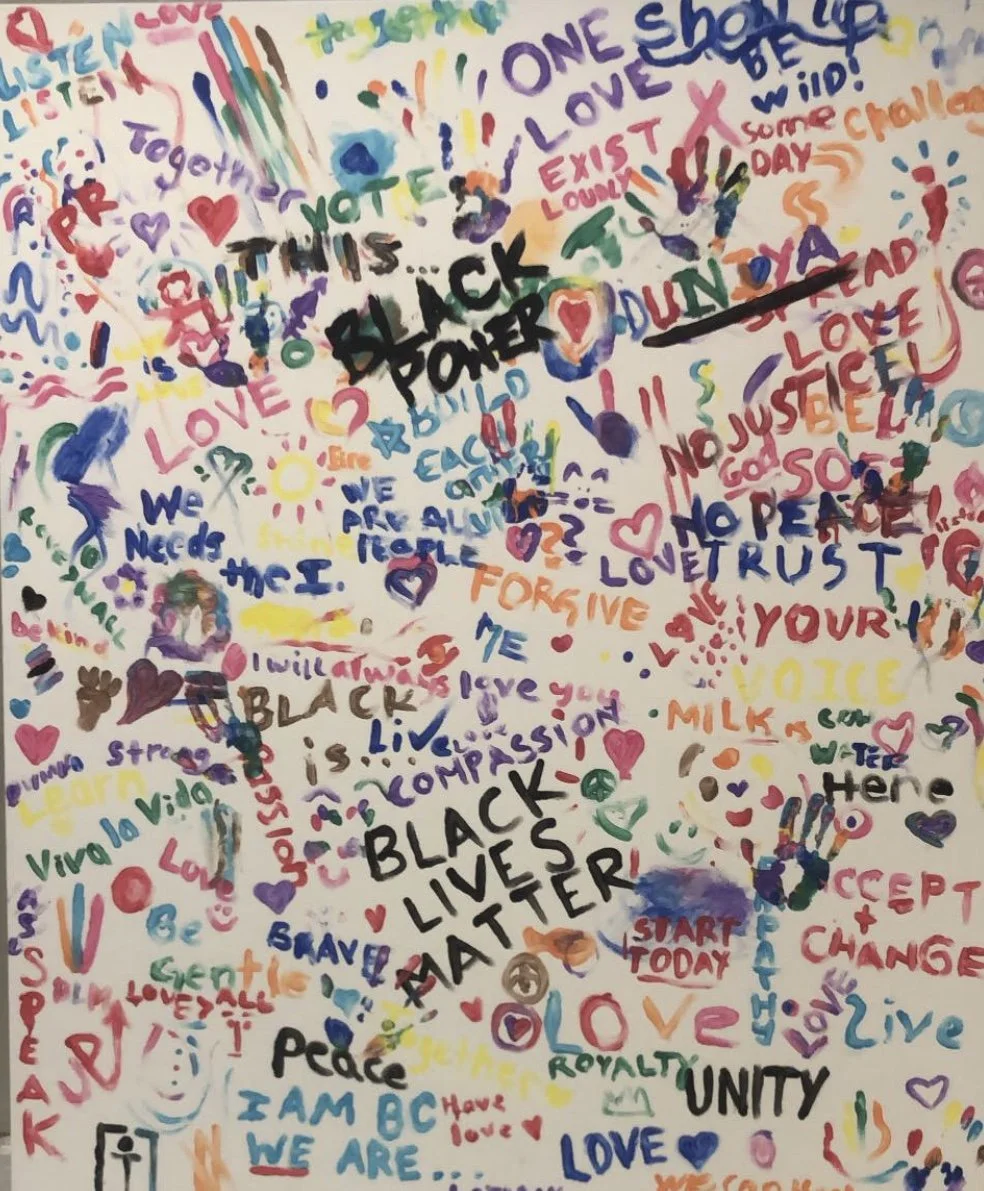 LOVE
together
ONE
LOVE
Show up
BE
Wild!
LISTEN
LISTEN
some
DAY
Challen
Together
EXIST
LOUDLY
VOTE
PR
THIS...
BLACK
POWER
DUNIYA
SPREAD
LOVE
is
LOVE
BUILD
EACH
other
NO JUSTICE
God
NO PEACE
We
Needs
the I.
WE
ARE ALL
PEOPLE
Shine
LOVE
TRUST
YOUR
VOICE
FORGIVE
ME
LOVE
be kind
I will always love you
BLACK
is...
Live
Love
COMPASSION
MILK
WATER
Here
Strong
Learn
Viva la Vida
passion
Love
BLACK
LIVES
MATTER
Be
Gentle
BRAVE
START
TODAY
EMPATHY
ACCEPT
+
CHANGE
SPEAK
BLM
LOVE > ALL
LOVE
LOVE
Live
Peace
together
ROYALTY
UNITY
I AM BC
WE ARE...
Have
love
LOVE